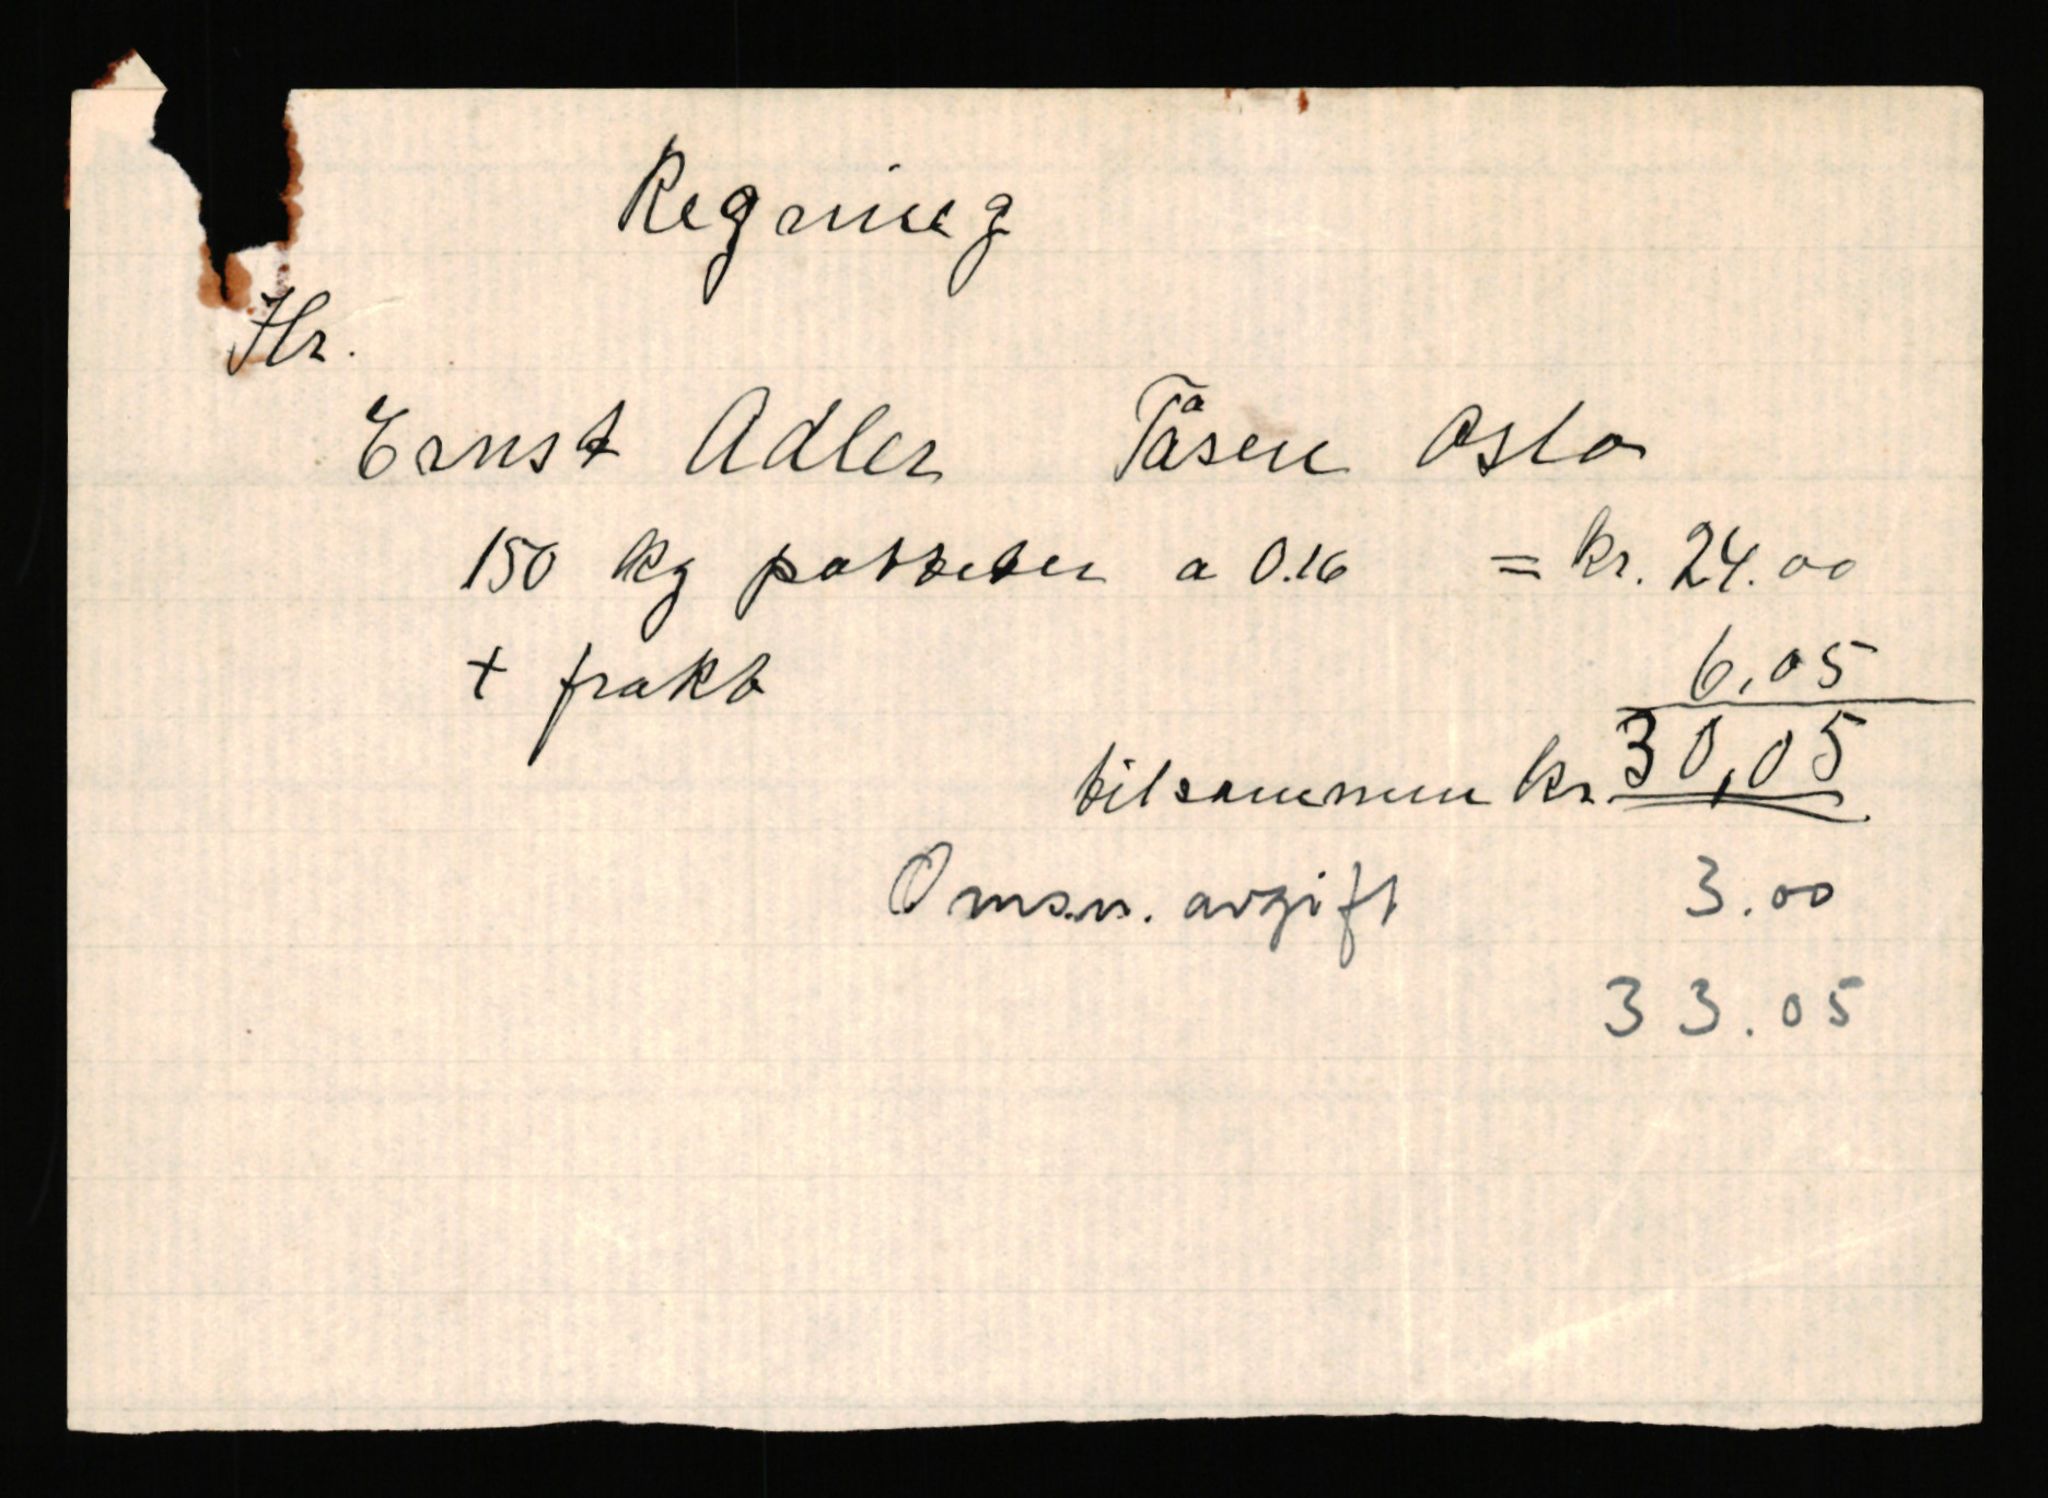 Regning
Hr.
Ernst Adler Tåsen Oslo
150 kg potteter a 0.16 = kr. 24.00
+ frakt 6,05
tilsammen kr 30,05
Omsn. avgift 3.00
33.05